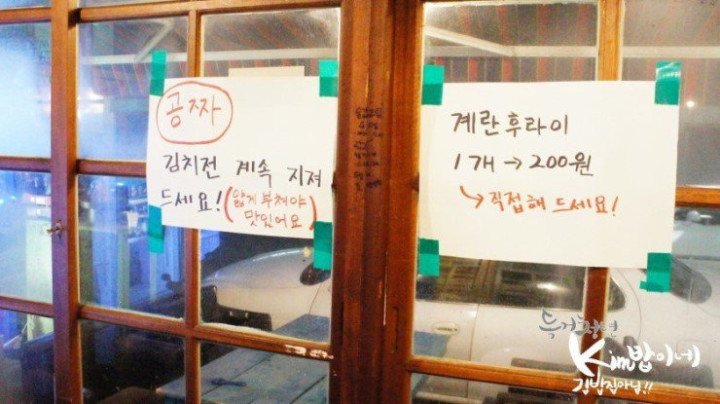 공짜
김치전 계속 지져
드세요! (얇게 부쳐야
맛있어요)
계란후라이
1개 → 200원
↳ 직접해 드세요!
독거청년
Kim밥이네
김밥집아님!!